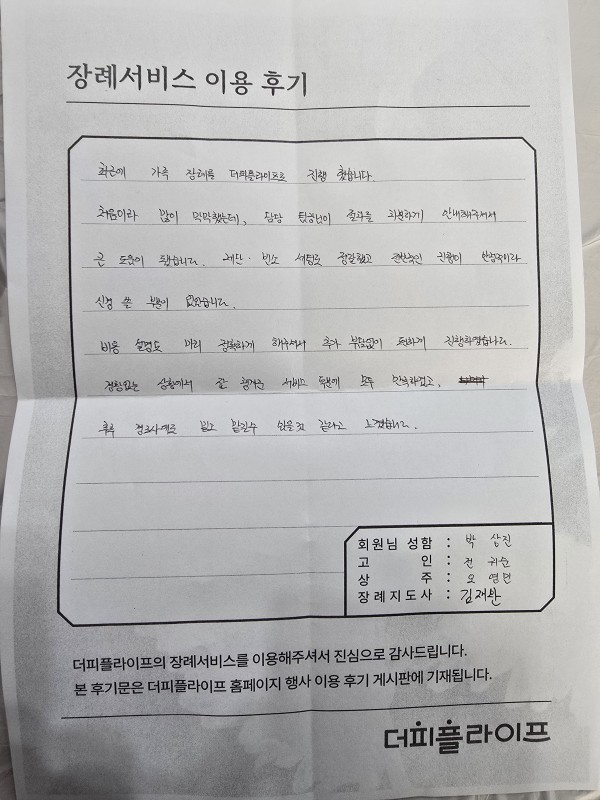 장례서비스 이용 후기
최근에 가족 장례를 더피플라이프로 진행 했습니다.
처음이라 많이 막막했는데, 담당 팀장님이 절차를 차분하게 안내해주셔서
큰 도움이 됐습니다. 제단·빈소 세팅도 정갈했고 전반적인 진행이 안정적이라
신경 쓸 부분이 없었습니다.
비용 설명도 미리 정확하게 해주셔서 추가 부담없이 편하게 진행하였습니다.
경황없는 상황에서 잘 챙겨준 서비스 덕분에 모두 만족하였고,
추후 경조사에도 믿고 맡길수 있을것 같다고 느꼈습니다.
회원님 성함 : 박 상진
고 인 : 전 귀순
상 주 : 오 영민
장례지도사 : 김재완
더피플라이프의 장례서비스를 이용해주셔서 진심으로 감사드립니다.
본 후기문은 더피플라이프 홈페이지 행사 이용 후기 게시판에 기재됩니다.
더피플라이프